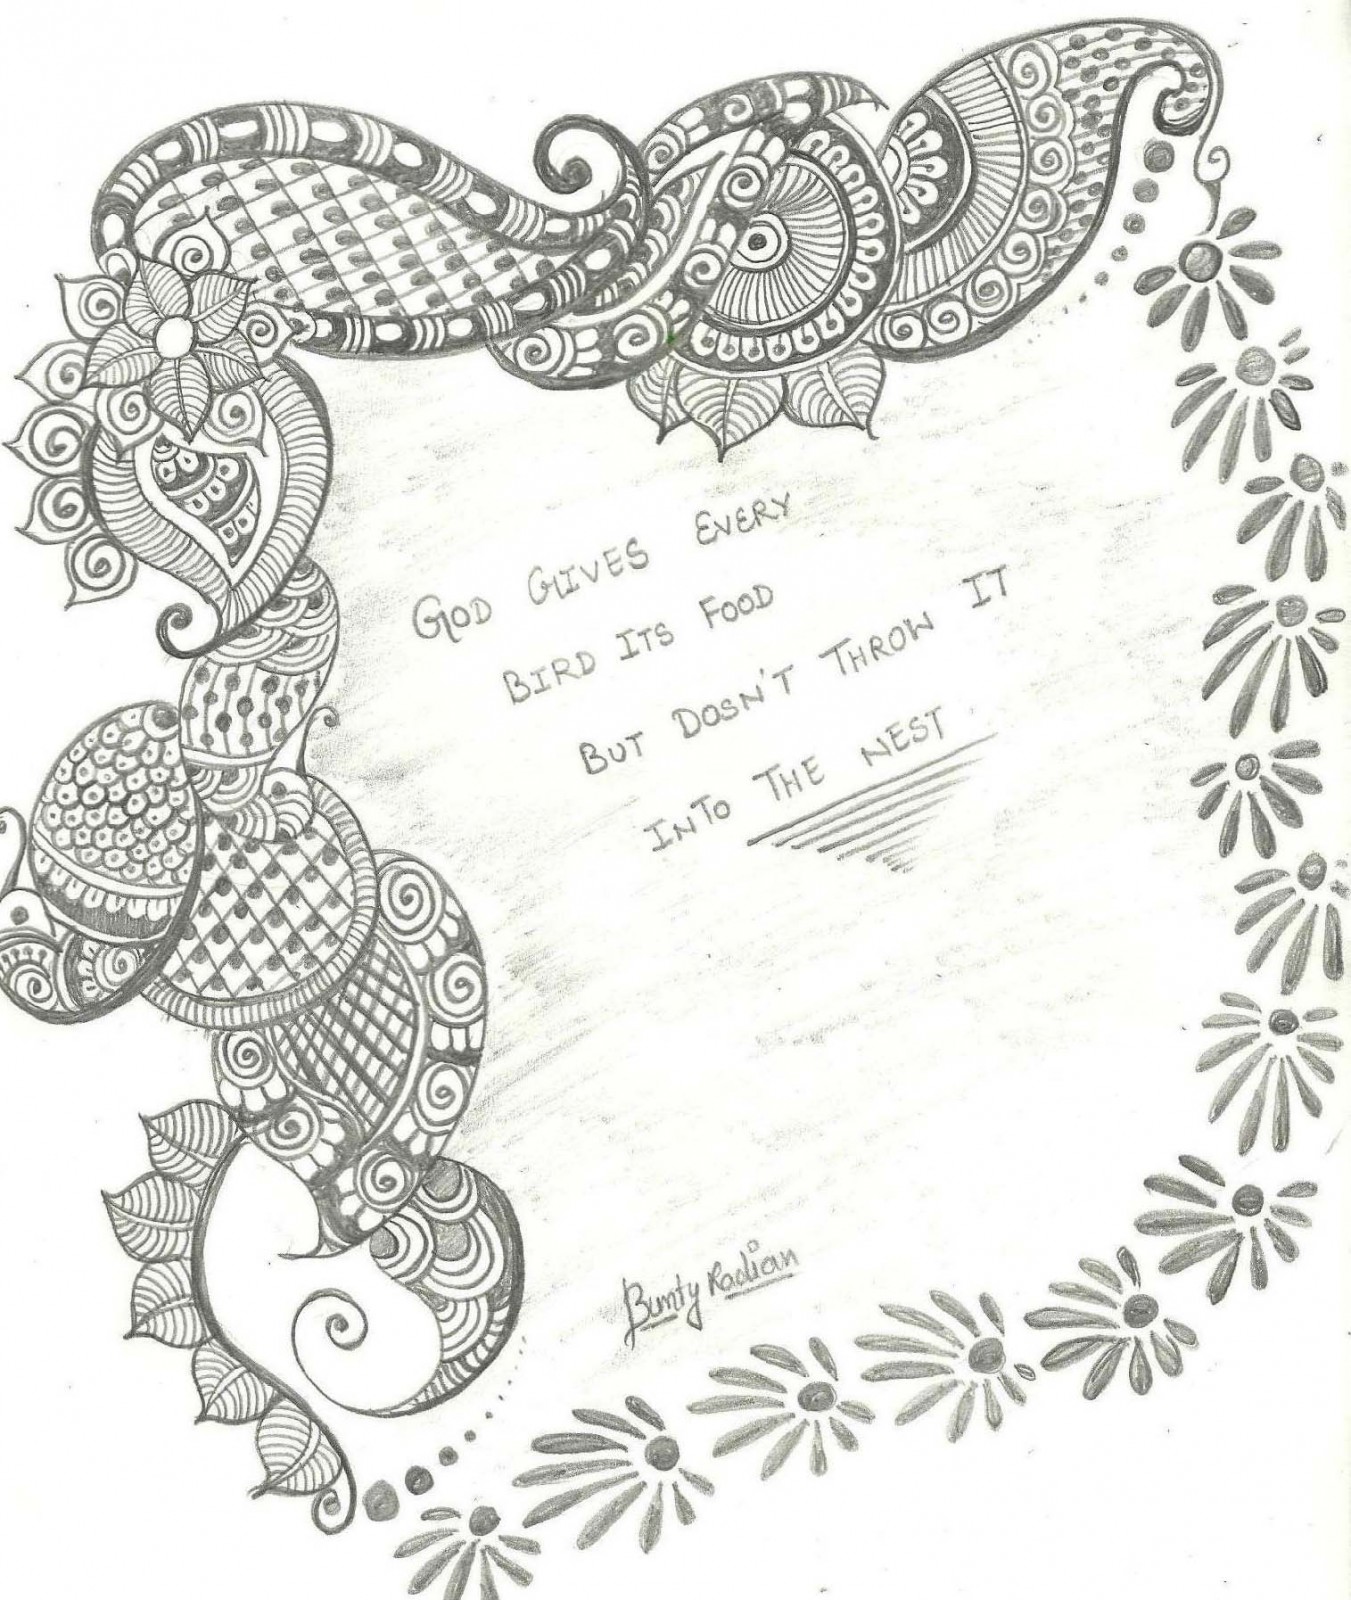 GOD GIVES EVERY
BIRD ITS FOOD
BUT DOSN'T THROW IT
INTO THE NEST.
Bunty Radian